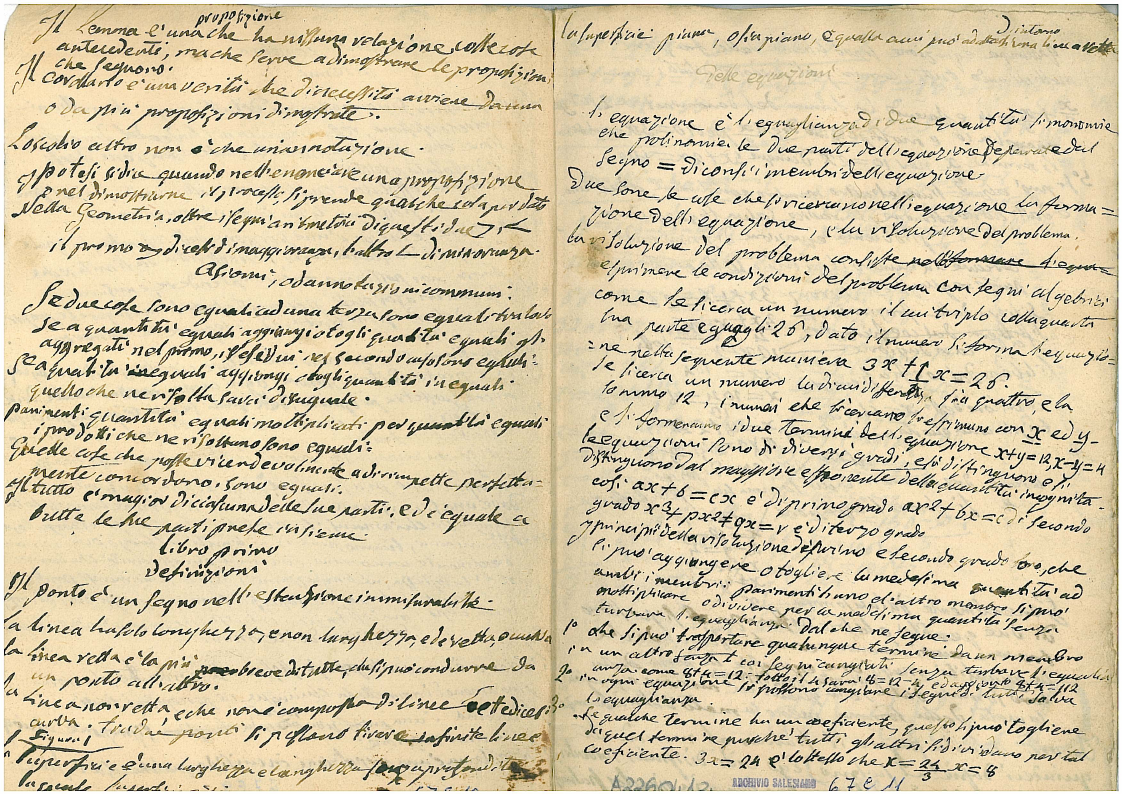 proposizione
Il Lemma è una che ha nissuna relazione colle cose
antecedenti, ma che serve a dimostrare le proposizioni
che seguono.
Il corolario è una verità che di necessità avviene da una
o da più proposizioni dimostrate.
Lo scolio altro non è che un'annotazione.
Ipotesi si dice quando nell'enonciare una proposizione
nel dimostrarne il processo, si prende qualche cosa per dato
Nella Geometria, oltre i segni aritmetici di questi due > <
il promo > dicesi di maggioranza, l'altro < di minoranza
Asiomi, od annotazioni communi.
Se due cose sono eguali ad una terza sono eguali tra loro
Se a quantità eguali aggiungi o togli quantità eguali gli
aggregati nel promo, i residui nel secondo caso sono eguali.
Se a quantità ineguali aggiongi o togli quantità ineguali
quello che ne risolta sarà disuguale.
Parimenti quantità eguali moltiplicati per quantità eguali
i prodotti che ne risoltano sono eguali.
Quelle cose che poste vicendevolmente a dirimpetto perfetta=
mente concordano, sono eguali.
Il tutto è magior di ciascuna delle sue parti, ed è eguale a
tutte le sue
parti prese insieme
Libro primo
Definizioni
Il ponto è un segno nell'estensione immisurabile.
La linea ha solo longhezza, e non larghezza, ed è retta, o curva
La linea retta è la più
breve di tutte, che si può condurre da
un ponto all'altro.
La Linea non retta, e che non è composta di linee rette dicesi
curva. tra due ponti si possono tirare infinite linee
Figura 1
Superficie è una larghezza e longhezza senza profondità
D'intorno
La superficie piana, o sia piano, è quella a cui può adattarsi una linea retta
Delle equazioni
L'equazione è l'eguaglianza di due quantità si monomie
che polinomie le due parti dell'equazione separate dal
segno = diconsi membri dell'equazione.
Due sono le cose che si ricercano nell'equazione la forma=
zione dell'equazione, e la risoluzione del problema.
La risoluzione del problema consiste nell'formare l'equa=
esprimere le condizioni del problema con segni algebrici
come se si cerca un numero il cui triplo colla quarta
sua parte eguagli 26, dato il numero si forma l'equazio=
=ne nella seguente maniera 3x + 1/4 x = 26.
Se si cerca un numero la di cui differenza sia quattro, e la
somma 12, i numeri che si cercano, si esprimino con x ed y
e si formeranno i due termini dell'equazione x+y=12, x-y=4
Le equazioni sono di diversi gradi, e si distinguono e si
distinguono dal maggiore esponente della quantità incognita.
così ax+b=cx è di primo grado ax2+bx=c di secondo
grado x3+px2+qx=r è di terzo grado
I principi della risoluzione del primo e secondo grado sono, che
si può aggiongere o togliere la medesima quantità ad
ambi i membri: parimenti l'uno e l'altro membro si può
moltiplicare o dividere per la medesima quantità senza
turbare l'eguaglianza dal che ne segue.
1° che si può trasportare qualunque termine da un membro
in un altro senza i coi segni cangiati senza turbare l'eguagli
anza come 8+4=12: tolto il 4 sarà 8=12-4 ed aggionto 8+4=12
2° in ogni equazione si possono cangiare i segni di tutti, salva
l'eguaglianza
3° Se qualche termine ha un coeficiente, questo si può togliere
da quel termine purché tutti gli altri si dividano per tal
coeficiente. 3x=24 è lo stesso che x=24/3 x=8
A2260112
ARCHIVIO SALESIANO
67 E 11